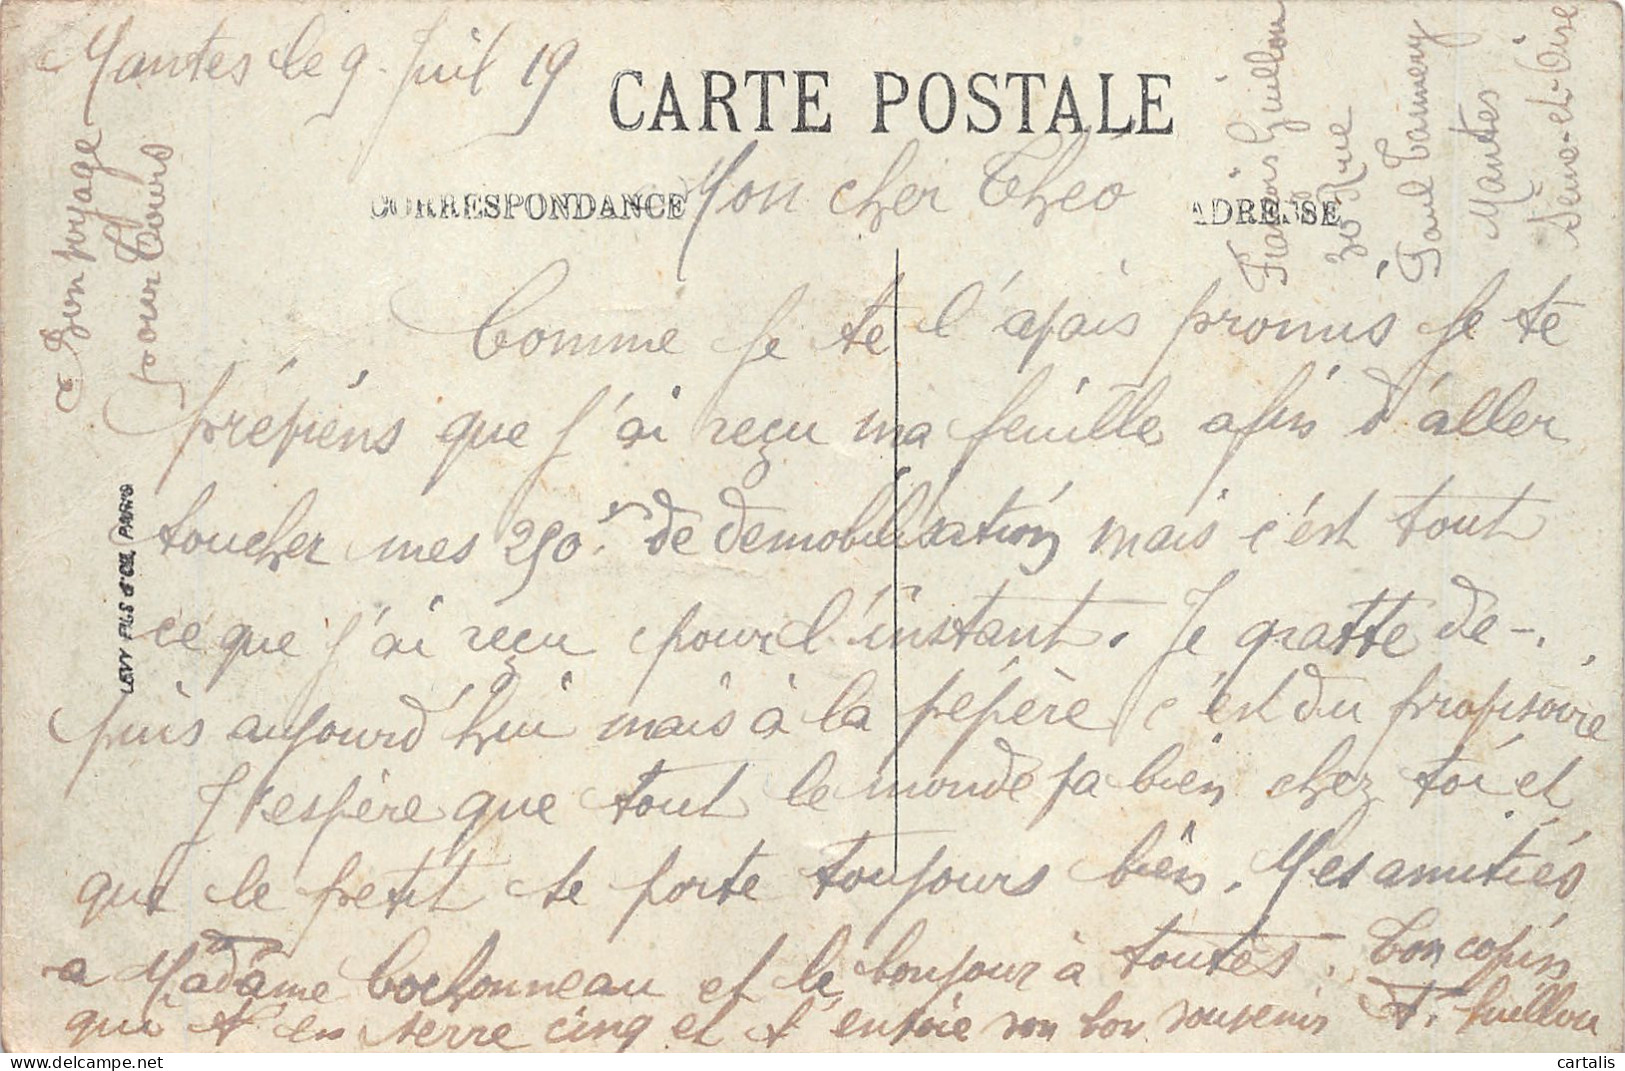 Mantes le 9 Juil 19
CARTE POSTALE
CORRESPONDANCE
ADRESSE
Mon cher Théo
Comme Je te l'avais promis Je te
préviens que J'ai reçu ma feuille afin d'aller
toucher mes 250 fr de démobilisation mais c'est tout
ce que j'ai reçu pour l'instant. Je gratte de-
puis aujourd'hui mais à la pépère c'est du provisoire
J'espère que tout le monde va bien chez toi et
que le petit se porte toujours bien. Mes amitiés
a Madame Cochonneau et le bonjour à toutes. Ton copin
qui t'en serre cinq et t'envoie son bon souvenir F. Guillou
Bon voyage
pour Tours
François Guillou
30 Rue
Paul Tannery
Mantes
Seine-et-Oise
LEVY FILS & Cie, PARIS
cartalis